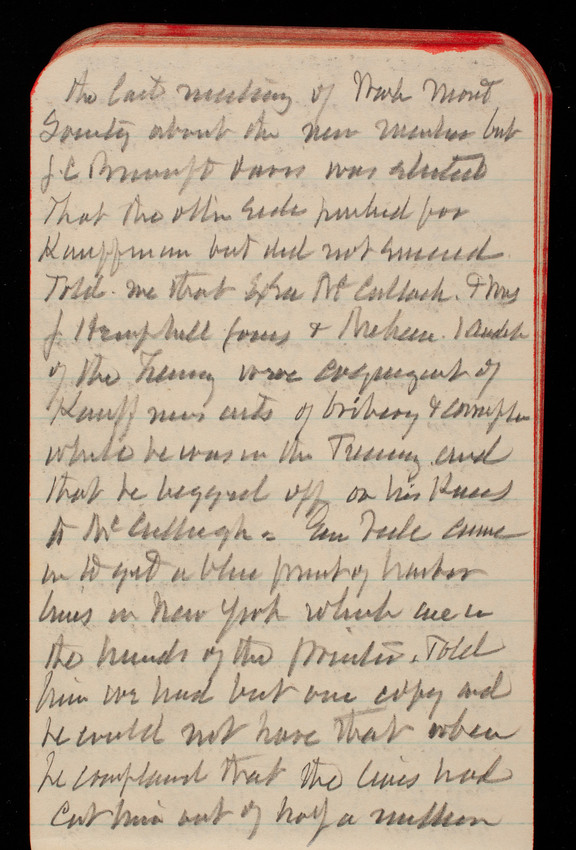 the last meeting of Wash Mont
Society about the new member but
J.C Bancroft Davis was elected
That the other side pushed for
Kauffman but did not succeed
Told me that McCulloch. & Mrs
J. Hemphill Jones &
of the Treasury were cognizant of
Kauffmans acts of bribery & corruption
while he was in the Treasury and
that he begged off on his knees
to McCullough = Gen came
in to get a blue print of harbor
lines in New York which are in
the hands of the printer. Told
him we had but one copy and
he could not have that when
he complained that the lines had
cut him out of half a million